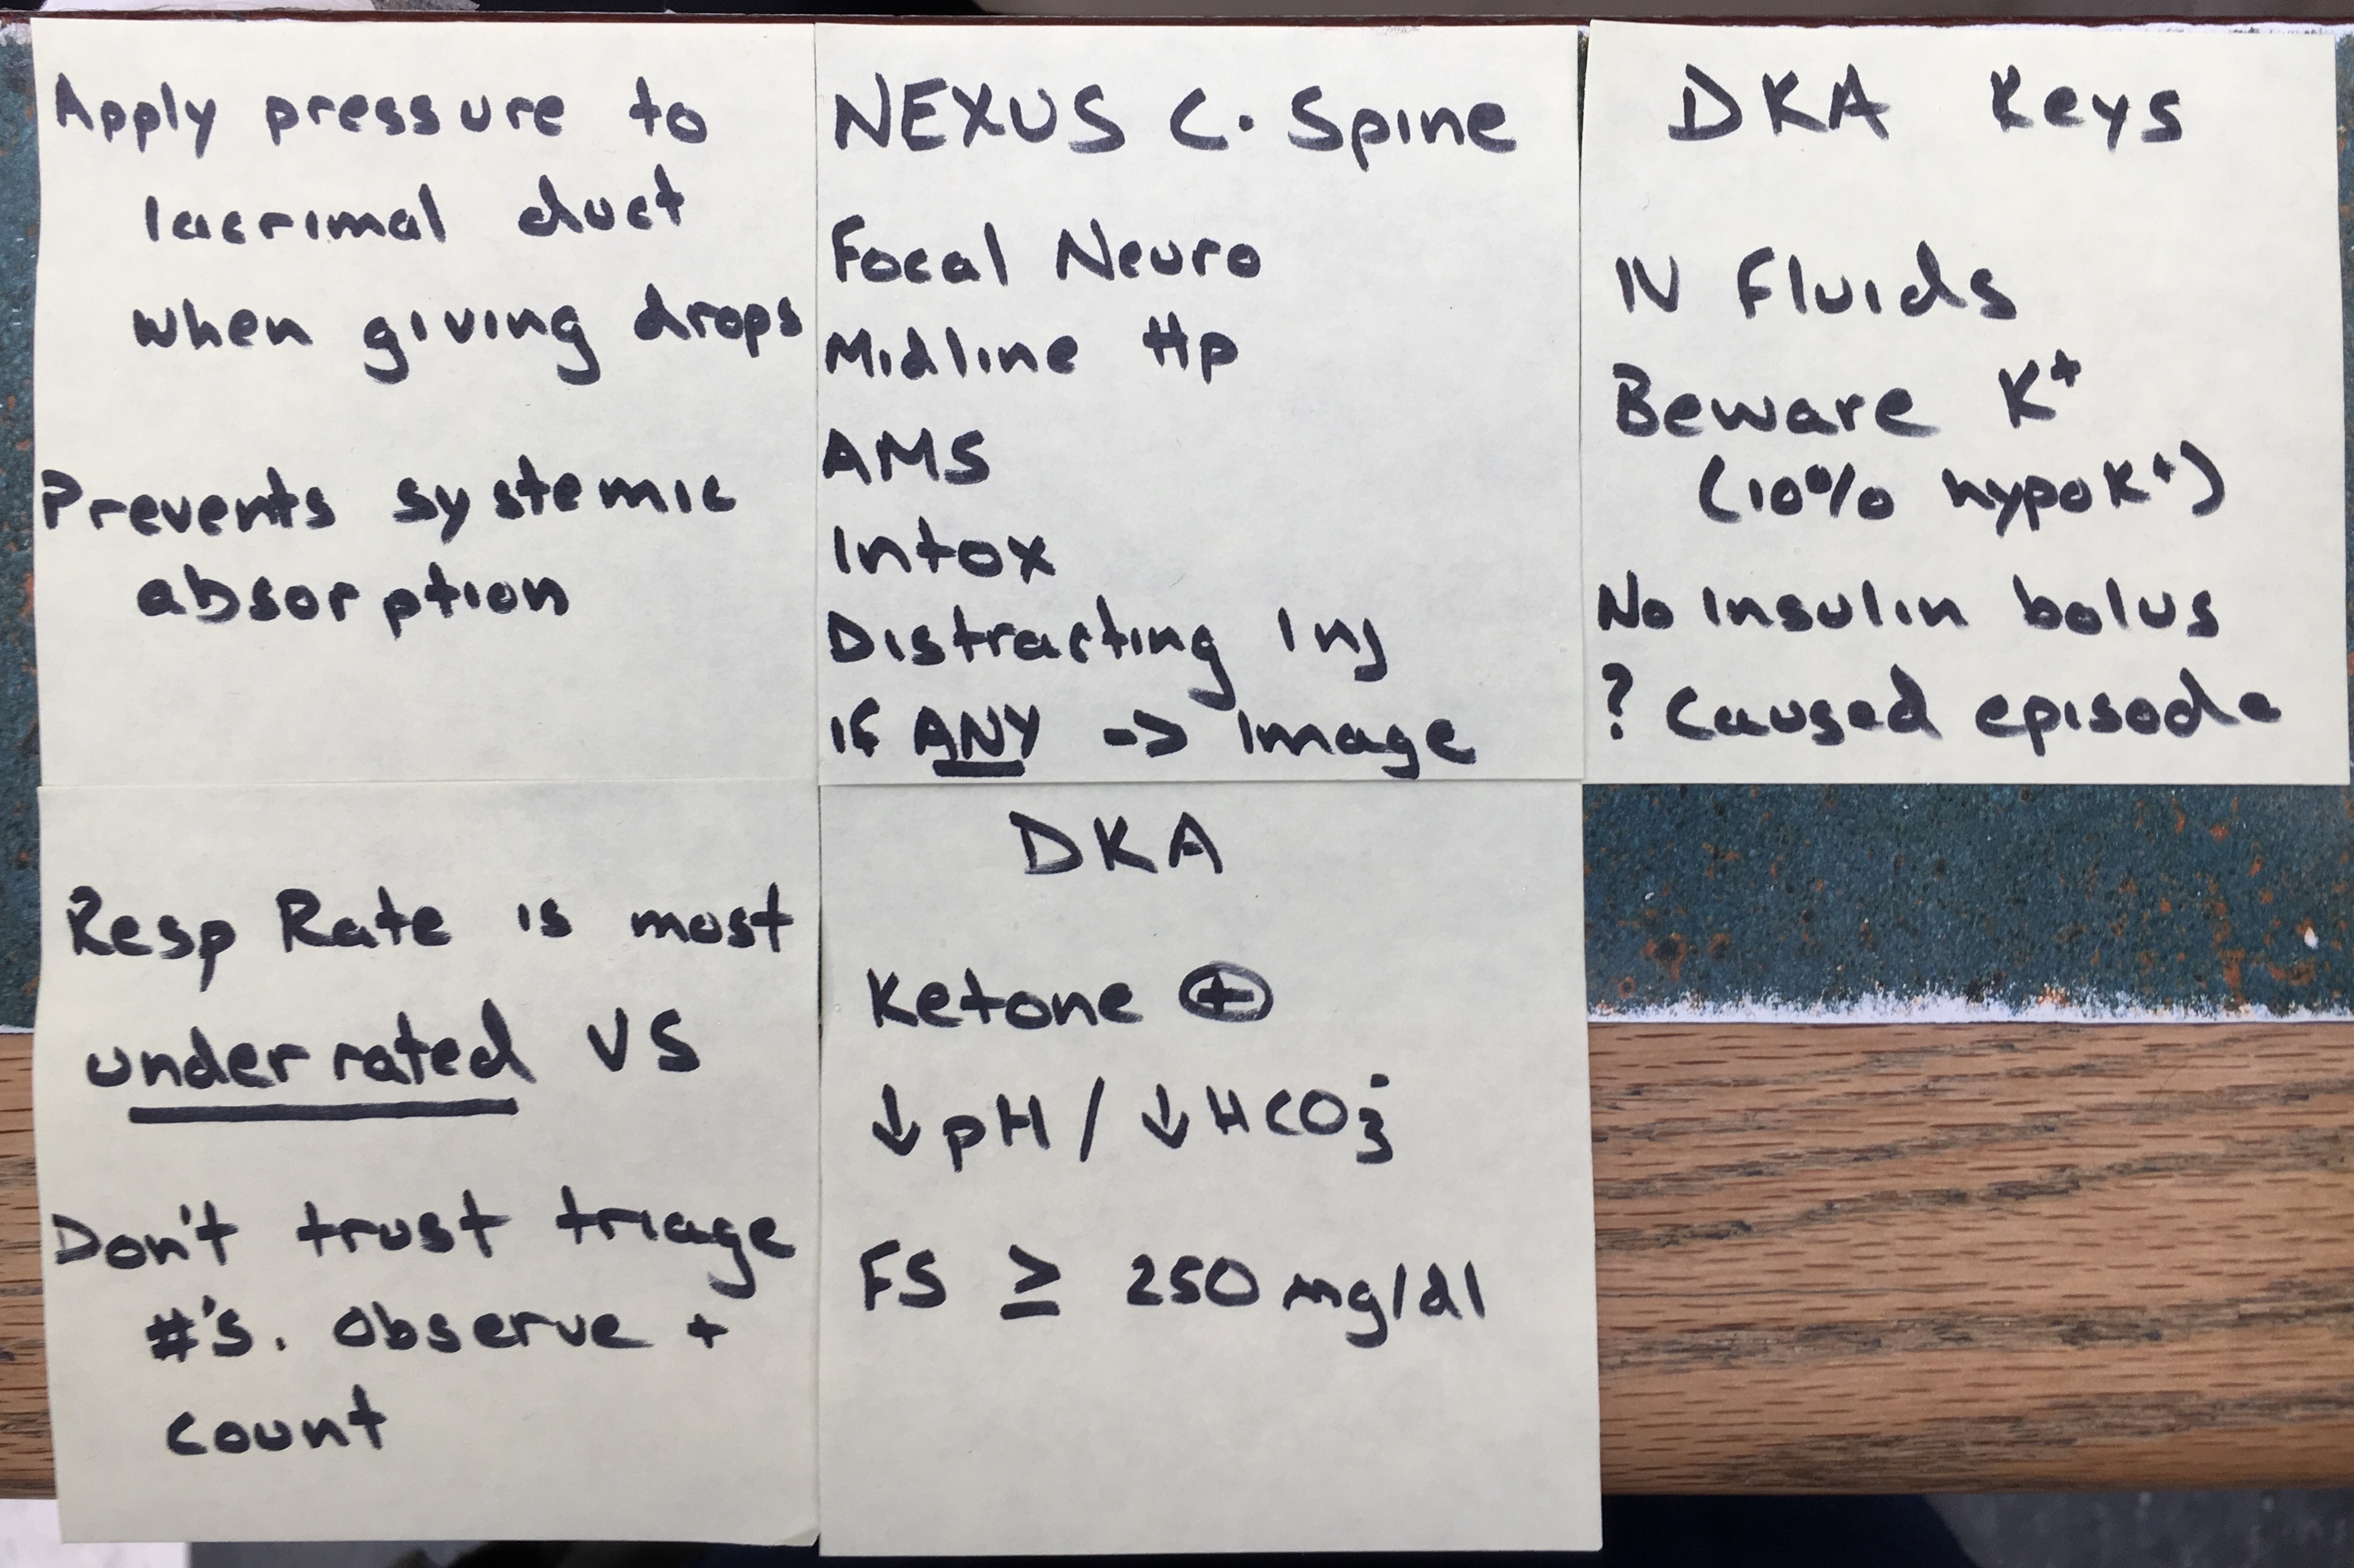 Apply pressure to
lacrimal duct
when giving drops
Prevents systemic
absorption
NEXUS C. Spine
Focal Neuro
Midline ttp
AMS
Intox
Distracting Inj
If ANY -> Image
DKA Keys
IV Fluids
Beware K⁺
(10% hypoK⁺)
No Insulin bolus
? Caused episode
Resp Rate is most
underrated VS
Don't trust triage
#'s. Observe +
count
DKA
Ketone ⊕
↓pH / ↓HCO₃⁻
FS ≥ 250 mg/dl